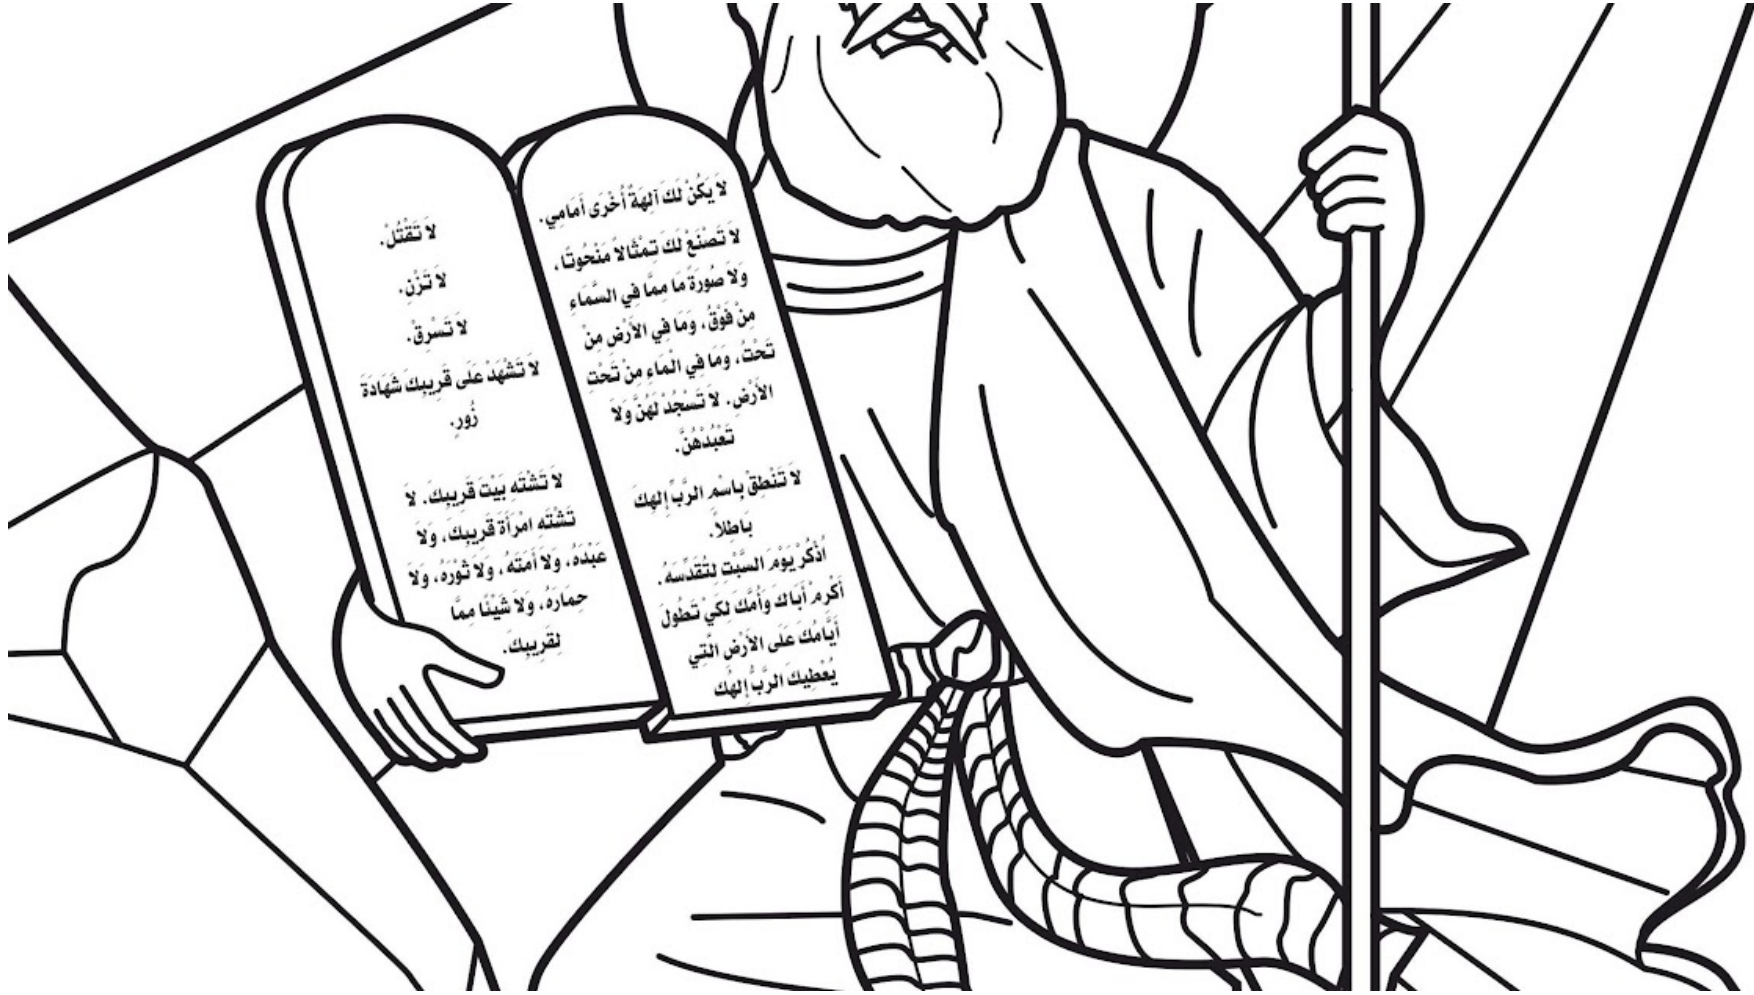 لاَ يَكُنْ لَكَ آلِهَةٌ أُخْرَى أَمَامِي.
لاَ تَصْنَعْ لَكَ تِمْثَالاً مَنْحُوتًا،
وَلاَ صُورَةً مَا مِمَّا فِي السَّمَاءِ
مِنْ فَوْقُ، وَمَا فِي الأَرْضِ مِنْ
تَحْتُ، وَمَا فِي الْمَاءِ مِنْ تَحْتِ
الأَرْضِ. لاَ تَسْجُدْ لَهُنَّ وَلاَ
تَعْبُدْهُنَّ.
لاَ تَنْطِقْ بِاسْمِ الرَّبِّ إِلهِكَ
بَاطِلاً.
اُذْكُرْ يَوْمَ السَّبْتِ لِتُقَدِّسَهُ.
أَكْرِمْ أَبَاكَ وَأُمَّكَ لِكَيْ تَطُولَ
أَيَّامُكَ عَلَى الأَرْضِ الَّتِي
يُعْطِيكَ الرَّبُّ إِلهُكَ
لاَ تَقْتُلْ.
لاَ تَزْنِ.
لاَ تَسْرِقْ.
لاَ تَشْهَدْ عَلَى قَرِيبِكَ شَهَادَةَ
زُورٍ.
لاَ تَشْتَهِ بَيْتَ قَرِيبِكَ. لاَ
تَشْتَهِ امْرَأَةَ قَرِيبِكَ، وَلاَ
عَبْدَهُ، وَلاَ أَمَتَهُ، وَلاَ ثَوْرَهُ، وَلاَ
حِمَارَهُ، وَلاَ شَيْئًا مِمَّا
لِقَرِيبِكَ.